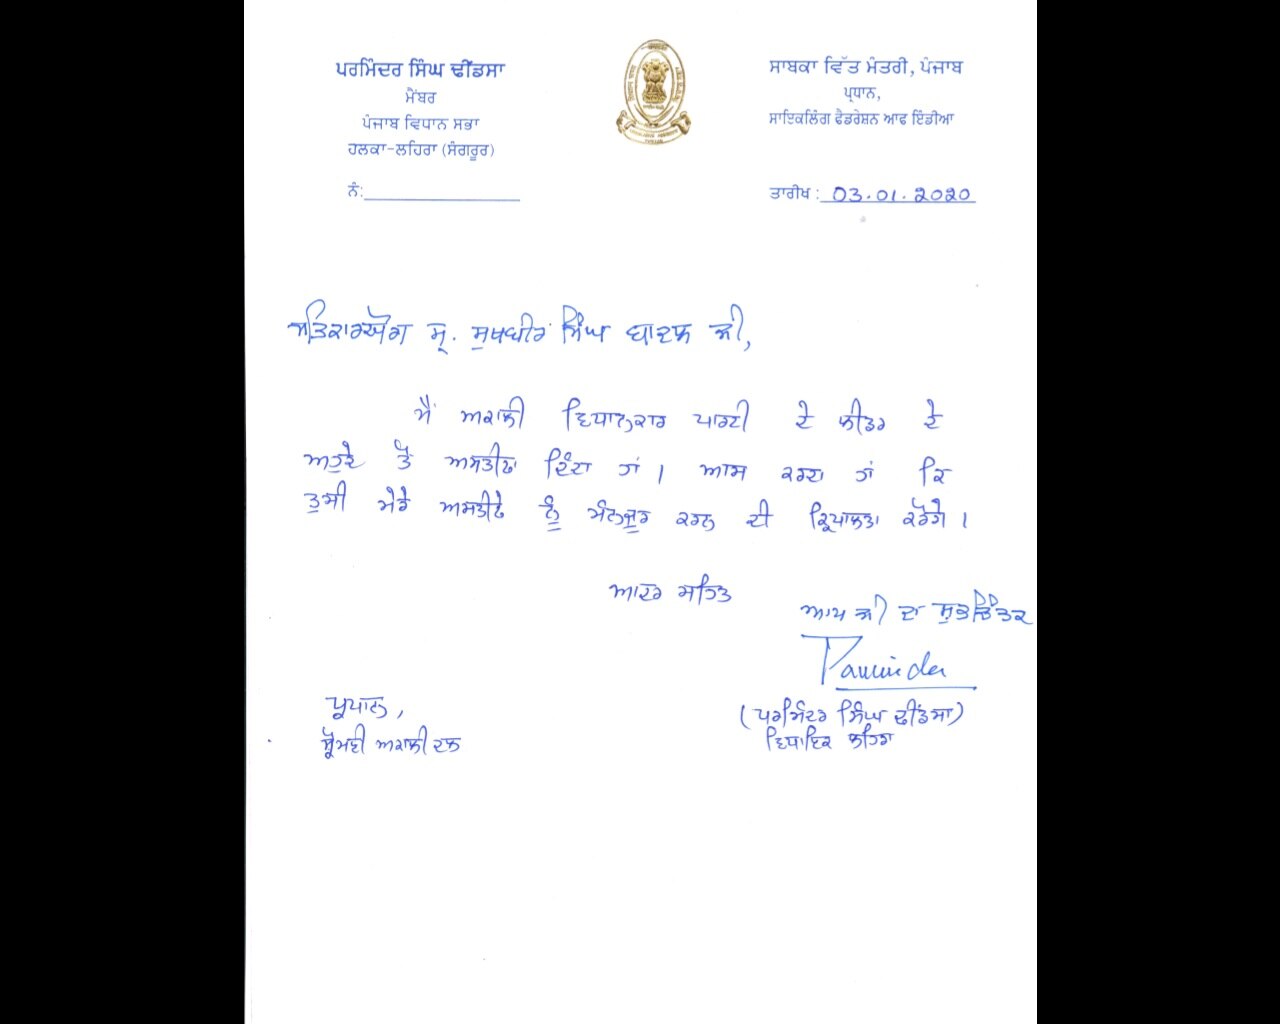 ਪਰਮਿੰਦਰ ਸਿੰਘ ਢੀਂਡਸਾ
ਮੈਂਬਰ
ਪੰਜਾਬ ਵਿਧਾਨ ਸਭਾ
ਹਲਕਾ-ਲਹਿਰਾ (ਸੰਗਰੂਰ)
ਨੰ:
ਸਾਬਕਾ ਵਿੱਤ ਮੰਤਰੀ, ਪੰਜਾਬ
ਪ੍ਰਧਾਨ,
ਸਾਇਕਲਿੰਗ ਫੈਡਰੇਸ਼ਨ ਆਫ ਇੰਡੀਆ
ਤਾਰੀਖ : 03.01.2020
ਸਤਿਕਾਰਯੋਗ ਸ੍ਰ. ਸੁਖਬੀਰ ਸਿੰਘ ਬਾਦਲ ਜੀ,
ਮੈਂ ਅਕਾਲੀ ਵਿਧਾਨਕਾਰ ਪਾਰਟੀ ਦੇ ਲੀਡਰ ਦੇ
ਅਹੁਦੇ ਤੋਂ ਅਸਤੀਫਾ ਦਿੰਦਾ ਹਾਂ। ਆਸ ਕਰਦਾ ਹਾਂ ਕਿ
ਤੁਸੀ ਮੇਰੇ ਅਸਤੀਫੇ ਨੂੰ ਮੰਨਜੂਰ ਕਰਨ ਦੀ ਕ੍ਰਿਪਾਲਤਾ ਕਰੋਗੇ।
ਆਦਰ ਸਹਿਤ
ਆਪ ਜੀ ਦਾ ਸ਼ੁਭਚਿੰਤਕ
Parminder
(ਪਰਮਿੰਦਰ ਸਿੰਘ ਢੀਂਡਸਾ)
ਵਿਧਾਇਕ ਲਹਿਰਾ
ਪ੍ਰਧਾਨ,
ਸ਼੍ਰੋਮਣੀ ਅਕਾਲੀ ਦਲ